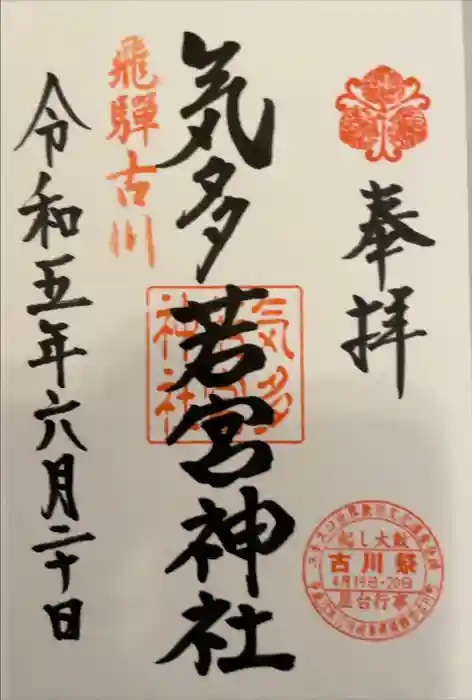 奉拝
飛騨古川
気多若宮神社
気多
若宮
神社
令和五年六月二十日
起し太鼓
古川祭
4月19日・20日
屋台行事